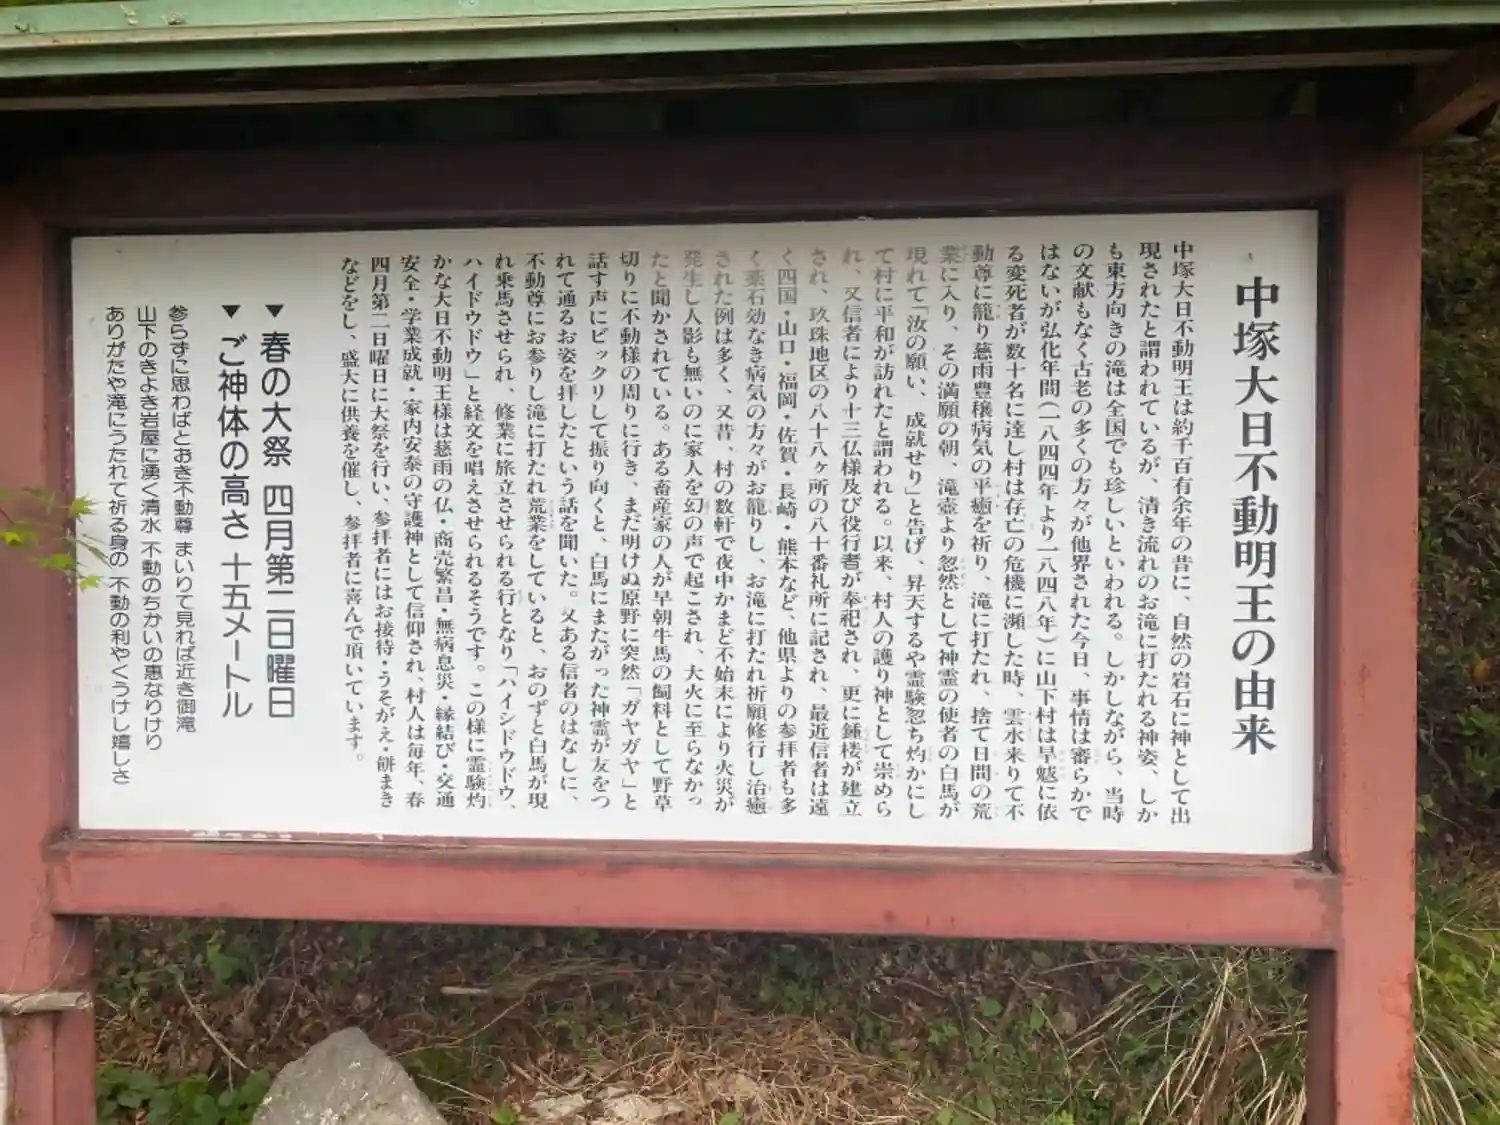 中塚大日不動明王の由来
中塚大日不動明王は約千百有余年の昔に、自然の岩石に神として出
現されたと謂われているが、清き流れのお滝に打たれる神姿、しか
も東方向きの滝は全国でも珍しいといわれる。しかしながら、当時
の文献もなく古老の多くの方々が他界された今日、事情は審らかで
はないが弘化年間(一八四四年より一八四八年)に山下村は旱魃に依
る変死者が数十名に達し村は存亡の危機に瀕した時、雲水来りて不
動尊に籠り慈雨豊穣病気の平癒を祈り、滝に打たれ、捨て日間の荒
業に入り、その満願の朝、滝壺より忽然として神霊の使者の白馬が
現れて「汝の願い、成就せり」と告げ、昇天するや霊験忽ち灼かにし
て村に平和が訪れたと謂われる。以来、村人の護り神として崇めら
れ、又信者により十三仏様及び役行者が奉祀され、更に鍾楼が建立
され、玖珠地区の八十八ヶ所の八十番札所に記され、最近信者は遠
く四国・山口・福岡・佐賀・長崎・熊本など、他県よりの参拝者も多
く薬石効なき病気の方々がお籠りし、お滝に打たれ祈願修行し治癒
された例は多く、又昔、村の数軒で夜中かまど不始末により火災が
発生し人影も無いのに家人を幻の声で起こされ、大火に至らなかっ
たと聞かされている。ある畜産家の人が早朝牛馬の飼料として野草
切りに不動様の周りに行き、まだ明けぬ原野に突然「ガヤガヤ」と
話す声にビックリして振り向くと、白馬にまたがった神霊が友をつ
れて通るお姿を拝したという話を聞いた。又ある信者のはなしに、
不動尊にお参りし滝に打たれ荒業をしていると、おのずと白馬が現
れ乗馬させられ、修業に旅立させられる行となり「ハイシドウドウ、
ハイドウドウ」と経文を唱えさせられるそうです。この様に霊験灼
かな大日不動明王様は慈雨の仏・商売繁昌・無病息災・縁結び・交通
安全・学業成就・家内安泰の守護神として信仰され、村人は毎年、春
四月第二日曜日に大祭を行い、参拝者にはお接待・うそがえ・餅まき
などをし、盛大に供養を催し、参拝者に喜んで頂いています。
▼春の大祭 四月第二日曜日
▼ご神体の高さ 十五メートル
参らずに思わばとおき不動尊 まいりて見れば近き御滝
山下のきよき岩屋に湧く清水 不動のちかいの恵なりけり
ありがたや滝にうたれて祈る身の 不動の利やくうけし嬉しさ